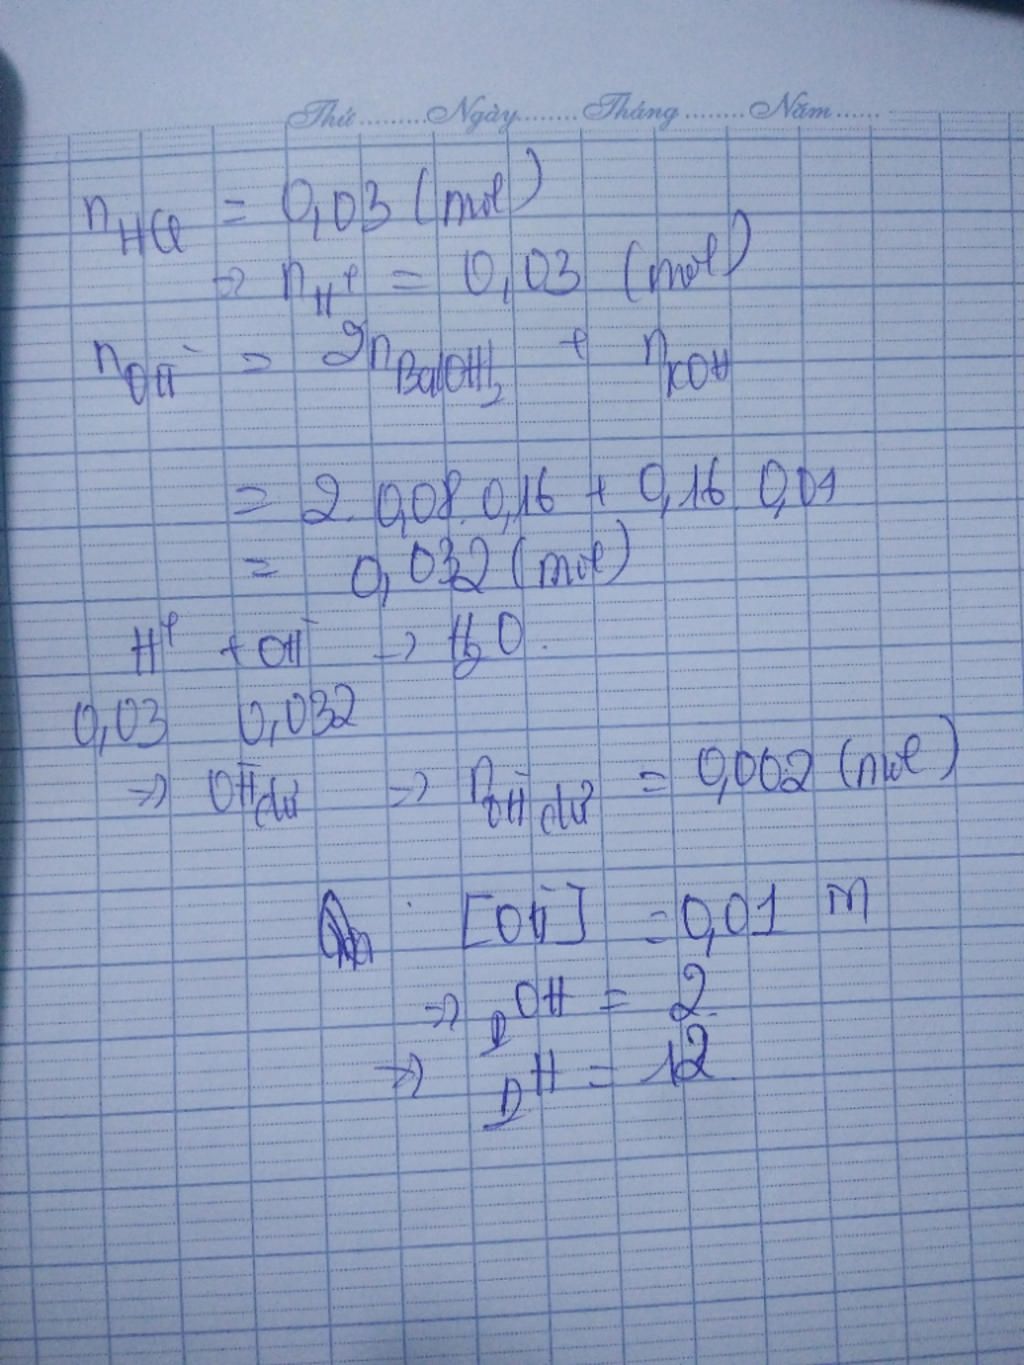 Thứ.........Ngày........Tháng........Năm......
n HCl = 0,03 (mol)
→ n H⁺ = 0,03 (mol)
n OH⁻ = 2n Ba(OH)₂ + n KOH
= 2. 0,08. 0,16 + 0,16. 0,04
= 0,032 (mol)
H⁺ + OH⁻ → H₂O.
0,03 0,032
→ OH⁻ dư → n OH⁻ dư = 0,002 (mol)
[OH⁻] = 0,01 M
→ pOH = 2
→ pH = 12